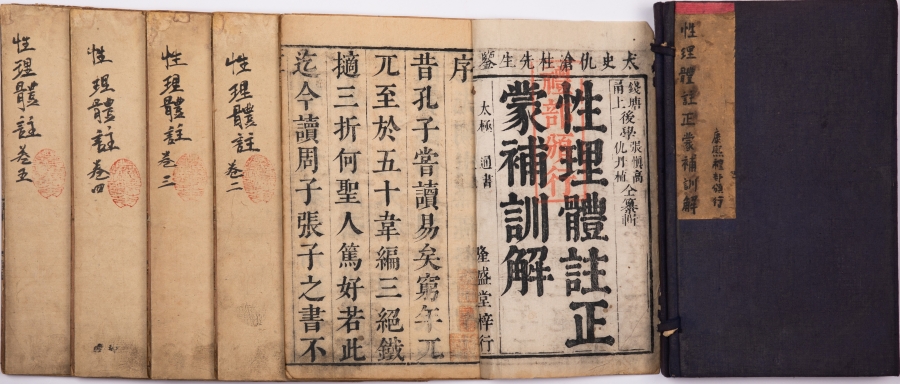 性理體註正蒙補訓解
康熙禮部頒行
太史仇滄柱先生鑒
錢塘後學張慎高
甬上仇丹植
全纂輯
性理體註正
蒙補訓解
禮部頒行
太極 通書
隆盛堂梓行
序
昔孔子嘗讀易矣窮年兀
兀至於五十韋編三絕鐵
擿三折何聖人篤好若此
迄今讀周子張子之書不
性理體註 卷二
性理體註 卷三
性理體註 卷四
性理體註 卷五